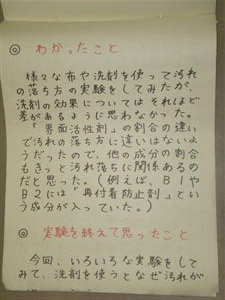 ◎ わかったこと
様々な布や洗剤を使って汚れ
の落ち方の実験をしてみたが、
洗剤の効果についてはそれほど
差があるように思わなかった。
「界面活性剤」の割合の違い
で汚れの落ち方に違いはないよ
うだったので、他の成分の割合
もきっと汚れ落ちに関係あるの
だと思った。(例えば、B1や
B2には「再付着防止剤」とい
う成分が入っていた。)
◎ 実験を終えて思ったこと
今回、いろいろな実験をして
みて、洗剤を使うとなぜ汚れが